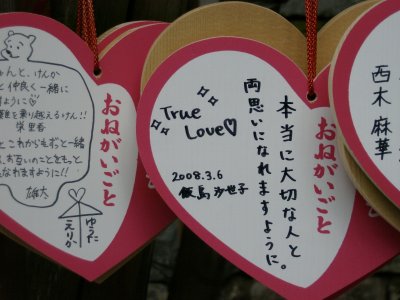 ゃんと、けんか
と仲良く一緒に
すように♡
難を乗り越えるけん!!
栄里香
とこれからもずっと一緒
、お互いのことをもっと
なれますように!!
雄大
ゆうた
えりか
おねがいごと
おねがいごと
本当に大切な人と
両思いになれますように。
True
Love♡
2008.3.6
飯島 沙世子
西木 麻華